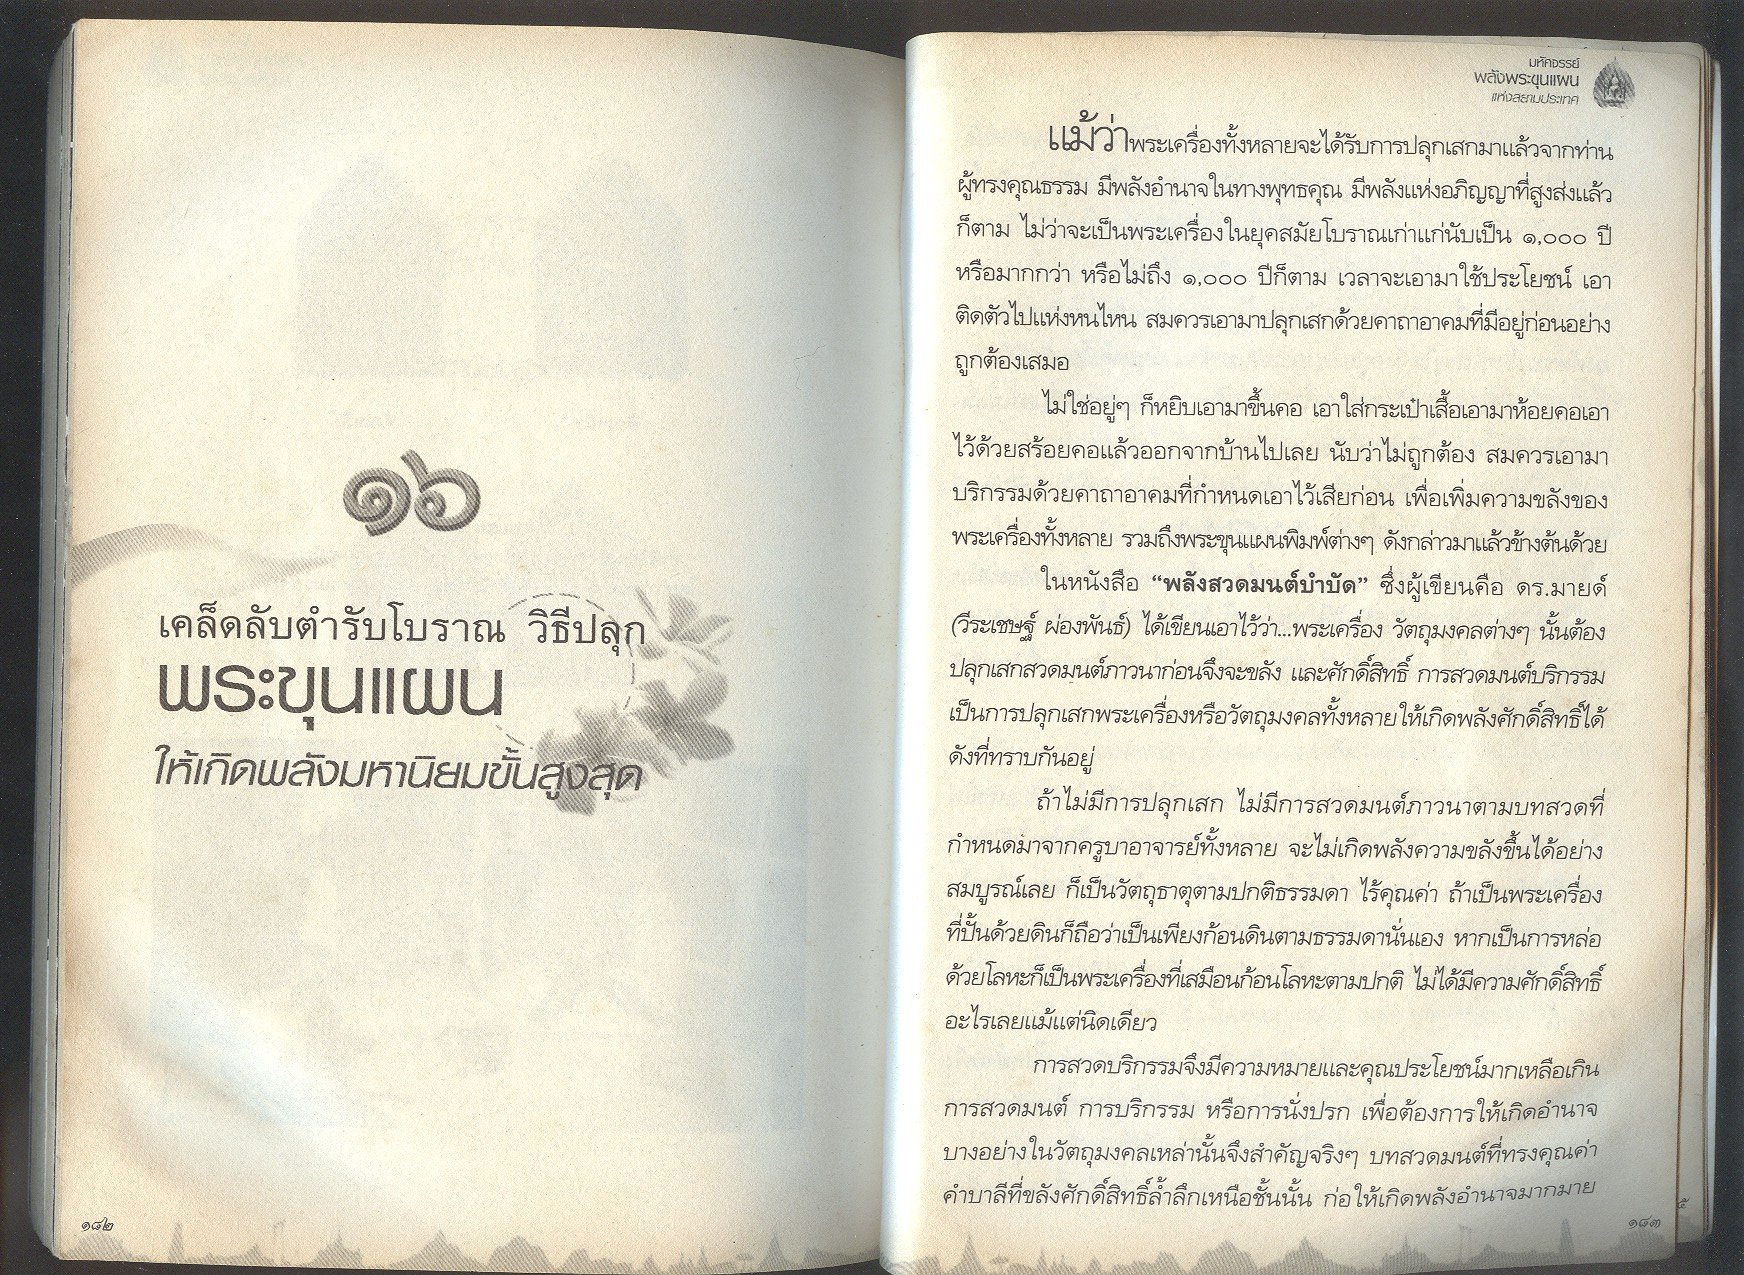 ๑๖
เคล็ดลับตำรับโบราณ วิธีปลุก
พระขุนแผน
ให้เกิดพลังมหานิยมขั้นสูงสุด
๑๘๒
มหัศจรรย์
พลังพระขุนแผน
แห่งสยามประเทศ
แม้ว่าพระเครื่องทั้งหลายจะได้รับการปลุกเสกมาแล้วจากท่าน
ผู้ทรงคุณธรรม มีพลังอำนาจในทางพุทธคุณ มีพลังแห่งอภิญญาที่สูงส่งแล้ว
ก็ตาม ไม่ว่าจะเป็นพระเครื่องในยุคสมัยโบราณเก่าแก่นับเป็น ๑,๐๐๐ ปี
หรือมากกว่า หรือไม่ถึง ๑,๐๐๐ ปีก็ตาม เวลาจะเอามาใช้ประโยชน์ เอา
ติดตัวไปแห่งหนไหน สมควรเอามาปลุกเสกด้วยคาถาอาคมที่มีอยู่ก่อนอย่าง
ถูกต้องเสมอ
ไม่ใช่อยู่ๆ ก็หยิบเอามาขึ้นคอ เอาใส่กระเป๋าเสื้อเอามาห้อยคอเอา
ไว้ด้วยสร้อยคอแล้วออกจากบ้านไปเลย นับว่าไม่ถูกต้อง สมควรเอามา
บริกรรมด้วยคาถาอาคมที่กำหนดเอาไว้เสียก่อน เพื่อเพิ่มความขลังของ
พระเครื่องทั้งหลาย รวมถึงพระขุนแผนพิมพ์ต่างๆ ดังกล่าวมาแล้วข้างต้นด้วย
ในหนังสือ “พลังสวดมนต์บำบัด” ซึ่งผู้เขียนคือ ดร.มายด์
(วีระเชษฐ์ ผ่องพันธ์) ได้เขียนเอาไว้ว่า...พระเครื่อง วัตถุมงคลต่างๆ นั้นต้อง
ปลุกเสกสวดมนต์ภาวนาก่อนจึงจะขลัง และศักดิ์สิทธิ์ การสวดมนต์บริกรรม
เป็นการปลุกเสกพระเครื่องหรือวัตถุมงคลทั้งหลายให้เกิดพลังศักดิ์สิทธิ์ได้
ดังที่ทราบกันอยู่
ถ้าไม่มีการปลุกเสก ไม่มีการสวดมนต์ภาวนาตามบทสวดที่
กำหนดมาจากครูบาอาจารย์ทั้งหลาย จะไม่เกิดพลังความขลังขึ้นได้อย่าง
สมบูรณ์เลย ก็เป็นวัตถุธาตุตามปกติธรรมดา ไร้คุณค่า ถ้าเป็นพระเครื่อง
ที่ปั้นด้วยดินก็ถือว่าเป็นเพียงก้อนดินตามธรรมดานั่นเอง หากเป็นการหล่อ
ด้วยโลหะก็เป็นพระเครื่องที่เสมือนก้อนโลหะตามปกติ ไม่ได้มีความศักดิ์สิทธิ์
อะไรเลยแม้แต่นิดเดียว
การสวดบริกรรมจึงมีความหมายและคุณประโยชน์มากเหลือเกิน
การสวดมนต์ การบริกรรม หรือการนั่งปรก เพื่อต้องการให้เกิดอำนาจ
บางอย่างในวัตถุมงคลเหล่านั้นจึงสำคัญจริงๆ บทสวดมนต์ที่ทรงคุณค่า
คำบาลีที่ขลังศักดิ์สิทธิ์ล้ำลึกเหนือชั้นนั้น ก่อให้เกิดพลังอำนาจมากมาย
๑๘๓